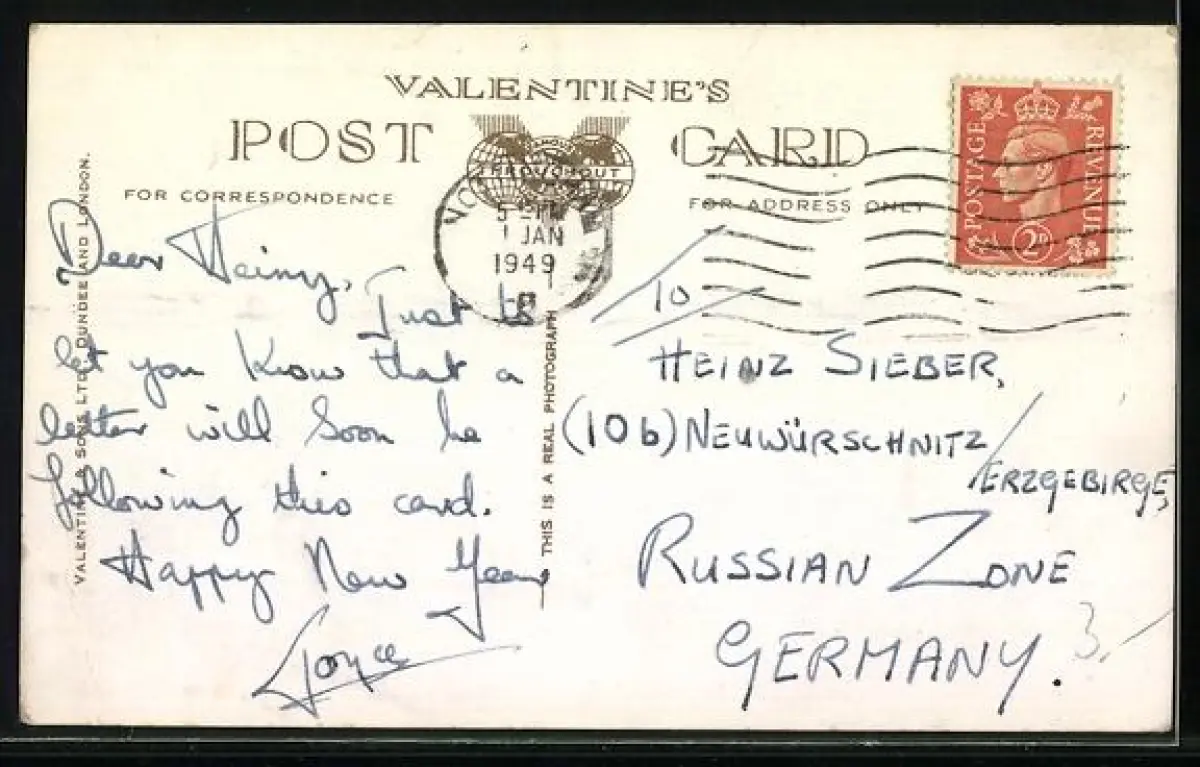 VALENTINE'S
POST CARD
THROUGHOUT
FOR CORRESPONDENCE
FOR ADDRESS ONLY
1 JAN
1949
POSTAGE
REVENUE
2D
VALENTINE & SONS, LTD. DUNDEE AND LONDON.
THIS IS A REAL PHOTOGRAPH
Dear Heinz,
Just to
let you know that a
letter will soon be
following this card.
Happy New Year
Joyce
To
HEINZ SIEBER,
(10b) NEUWÜRSCHNITZ
/ERZGEBIRGE,
RUSSIAN ZONE
GERMANY.
3,